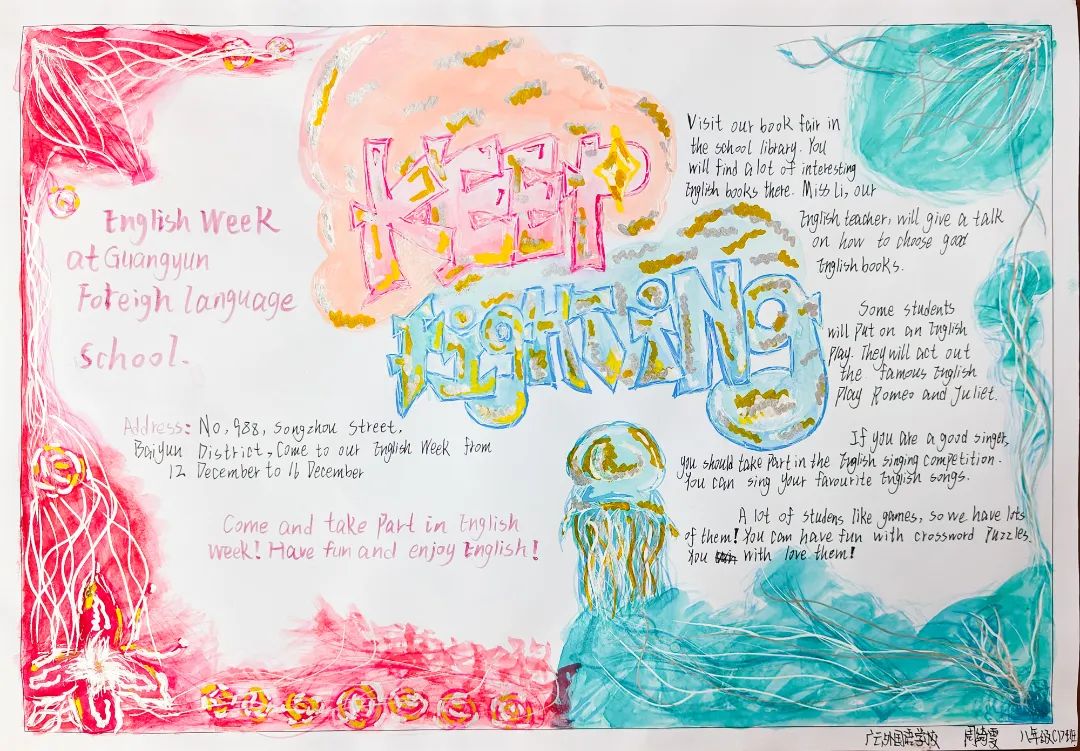 KEEP
FighTiNg
English Week
at Guangyun
Foreigh language
School.
Address: No, 988, Songzhou street,
Baiyun District, Come to our English Week from
12 December to 16 December
Come and take Part in English
Week! Have fun and enjoy English!
Visit our book fair in
the school library. You
will find a lot of interesting
English books there. Miss Li, our
English teacher, will give a talk
on how to choose good
English books.
Some students
will put on an English
Play. They will act out
the famous English
Play Romeo and Juliet.
If you are a good singer,
you should take Part in the English singing competition.
You can sing your favourite English songs.
A lot of studens like games, so we have lots
of them! You can have fun with crossword Puzzles.
You with love them!
广云外国语学校 周绮雯 八年级(7)班